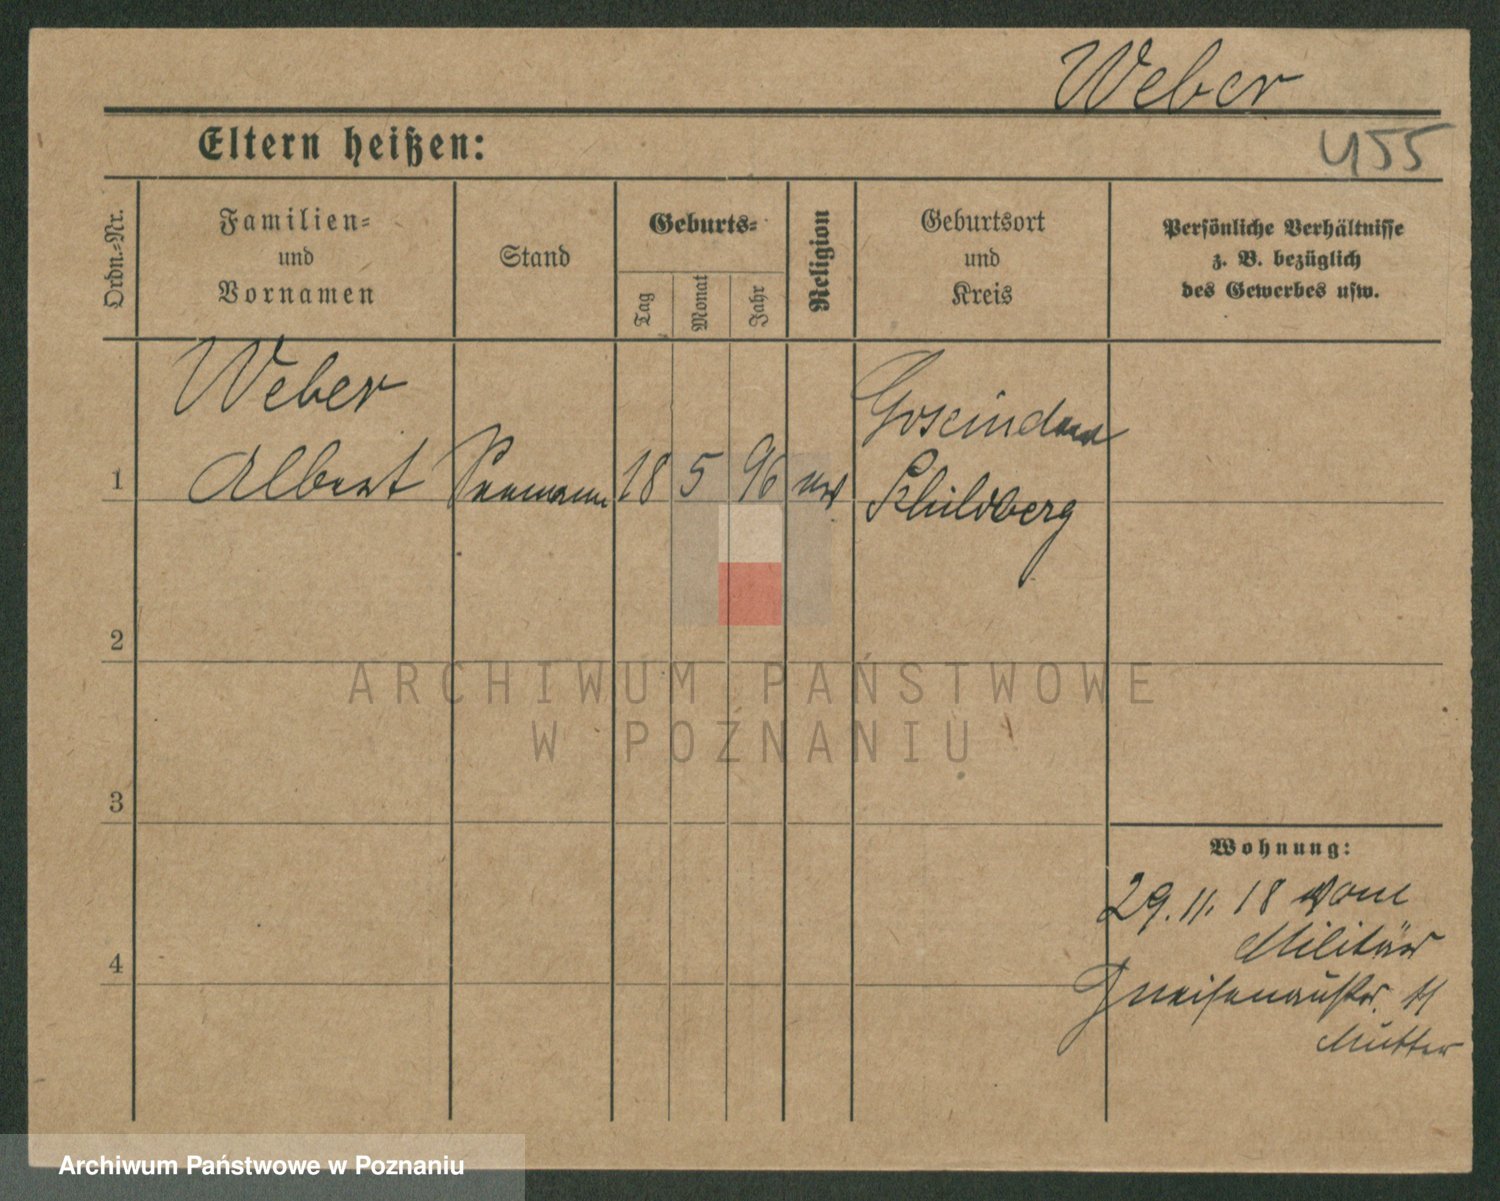 Weber
Eltern heißen:
455
Ordn.=Nr.
Familien=
und
Vornamen
Stand
Geburts=
Tag
Monat
Jahr
Religion
Geburtsort
und
Kreis
Persönliche Verhältnisse
z. B. bezüglich
des Gewerbes usw.
Weber
1 Albert Seemann 18 5 96
Schildberg
2
3
4
Wohnung:
29. 11. 18 vom
Militär
Gneisenaustr. 11
Mutter
ARCHIWUM PAŃSTWOWE
W POZNANIU
Archiwum Państwowe w Poznaniu